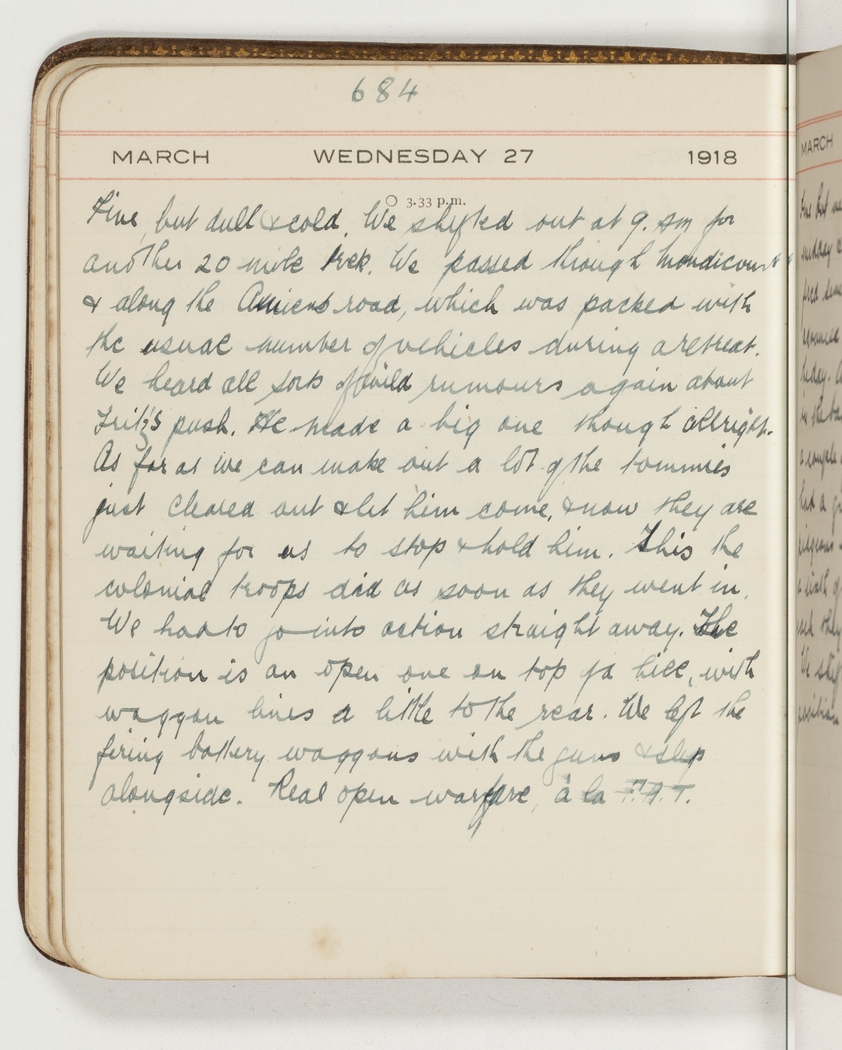 684
MARCH WEDNESDAY 27 1918
3.33 p.m.
Fine, but dull & cold. We shifted out at 9. am for
another 20 mile trek. We passed through Mondicourt
& along the Amiens road, which was packed with
the usual number of vehicles during a retreat.
We heard all sorts of wild rumours again about
Fritz's push. He made a big one though allright.
As far as we can make out a lot of the tommies
just cleared out & let him come, & now they are
waiting for us to stop & hold him. This the
colonial troops did as soon as they went in.
We had to go into action straight away. The
position is an open one on top of a hill, with
waggon lines a little to the rear. We left the
firing battery waggons with the guns & slep
alongside. Real open warfare, à la
MARCH